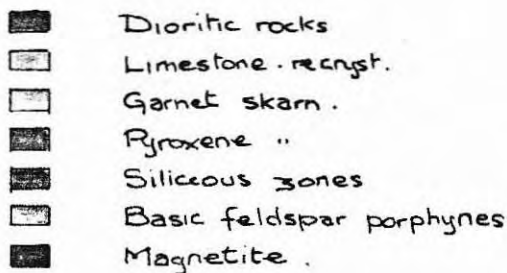 Dioritic rocks
Limestone . recryst.
Garnet skarn .
Pyroxene "
Siliceous zones
Basic feldspar porphyries
Magnetite .